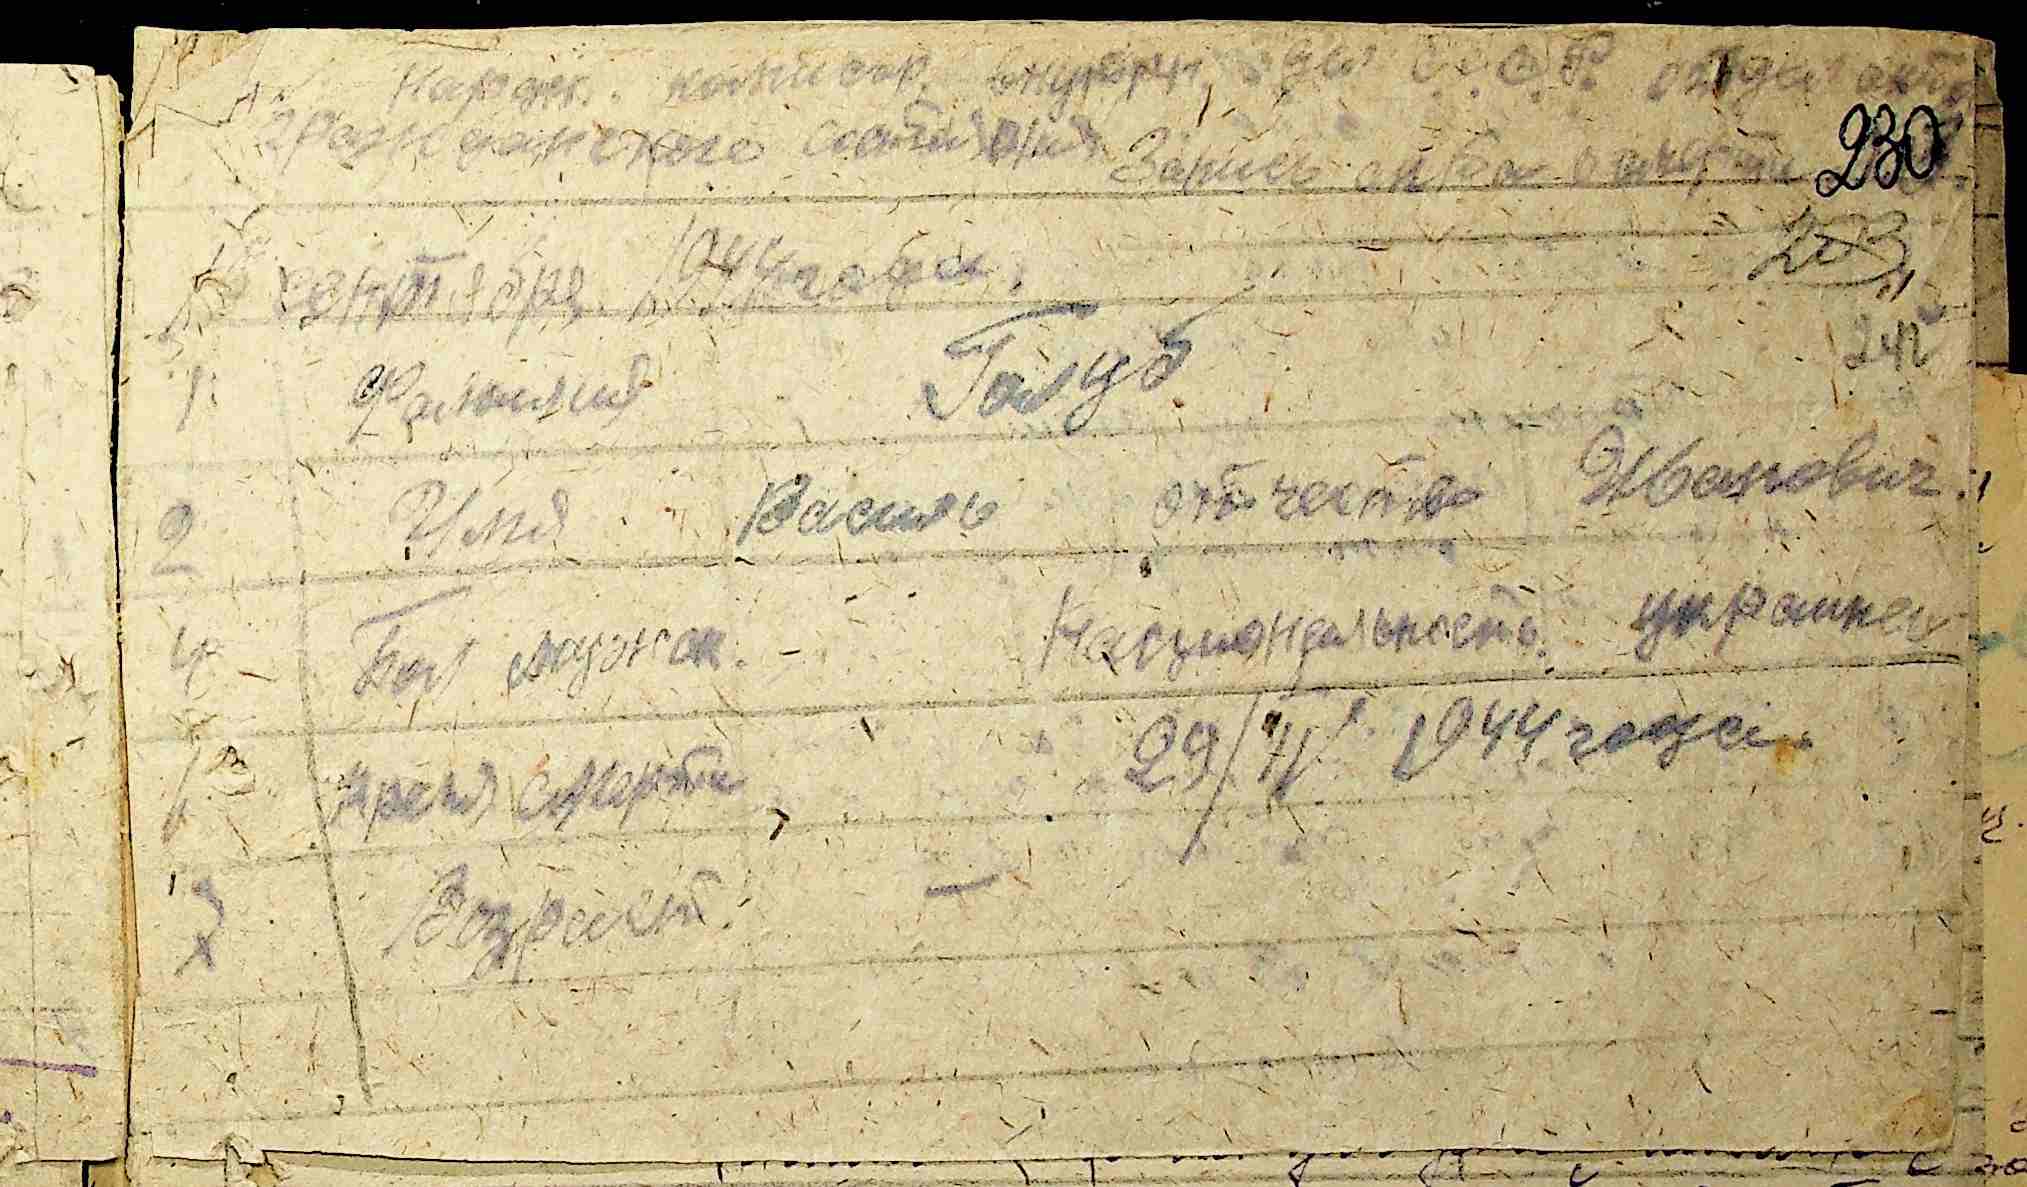 Народн. комисар. внутрен. дел С.С.С.Р. отдел акт.
гражданского состояния Запись акта о смерти
230
сентября 1944 года.
203
1 Фамилия Голуб
2 Имя Василь отчество Иванович.
4 Пол мужск. - Национальность. украинец
время смерти 29/ 1944 года.
Возраст. —